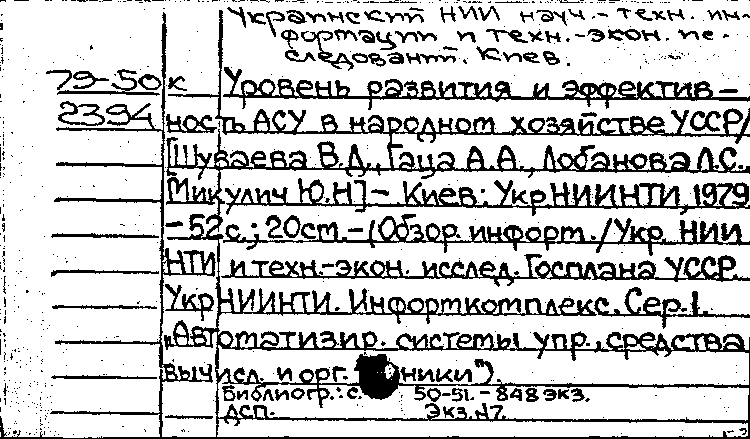 Украинский НИИ науч.-техн. ин-
формации и техн.-экон. ис-
следований. Киев.
79-50к Уровень развития и эффектив-
2394 ность АСУ в народном хозяйстве УССР/
[Шуваева В.Д., Гаца А.А., Лобанова Л.С.,
Микулич Ю.Н] - Киев: УкрНИИНТИ, 1979
- 52с.; 20см. - (Обзор. информ./Укр. НИИ
НТИ и техн.-экон. исслед. Госплана УССР
УкрНИИНТИ. Информкомплекс. Сер.1.
„Автоматизир. системы упр., средства
вычисл. и орг. ники").
Библиогр.: с. 50-51. - 848 экз.
ДСП. Экз. N7.